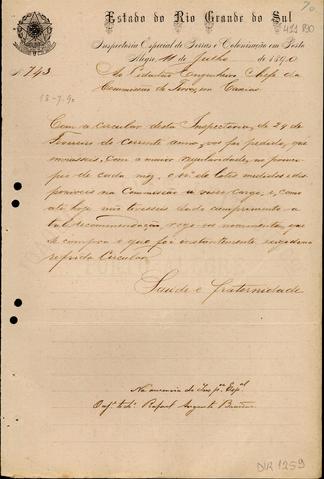 70
411 RIO
Estado do Rio Grande do Sul
Inspectoria Especial de Terras e Colonização em Porto
Alegre, 11 de Julho de 1890
N. 743
Ao Cidadão Engenheiro Chefe da
Commissão de Terras, em Caxias
18-7-90
Com a circular desta Inspectoria, de 28 de
Fevereiro do corrente anno, vos foi pedido, que
, com a maior regularidade, no princi-
pio de cada mez, o nº de lotes medidos e dis-
poniveis na Commissão a vosso cargo, e, como
até hoje não tivesseis dado cumprimento a
tal recommendação, rogo vos novamente, que
se cumpra o que foi instantemente na
referida Circular.
Saude e fraternidade
Na ausencia do Insp.or Esp.al
Rafael Augusto
DIR 1259